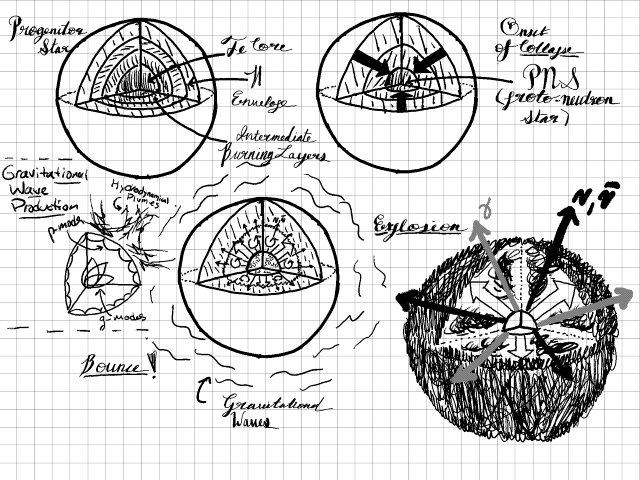 Progenitor
Star
Fe Core
H
Envelope
Intermediate
Burning Layers
Onset
of Collapse
PNS
(proto-neutron
star)
Gravitational
Wave
Production
Hydrodynamical
Plumes
p-modes
g-modes
Bounce!
Gravitational
Waves
Explosion
γ
ν, ν̄